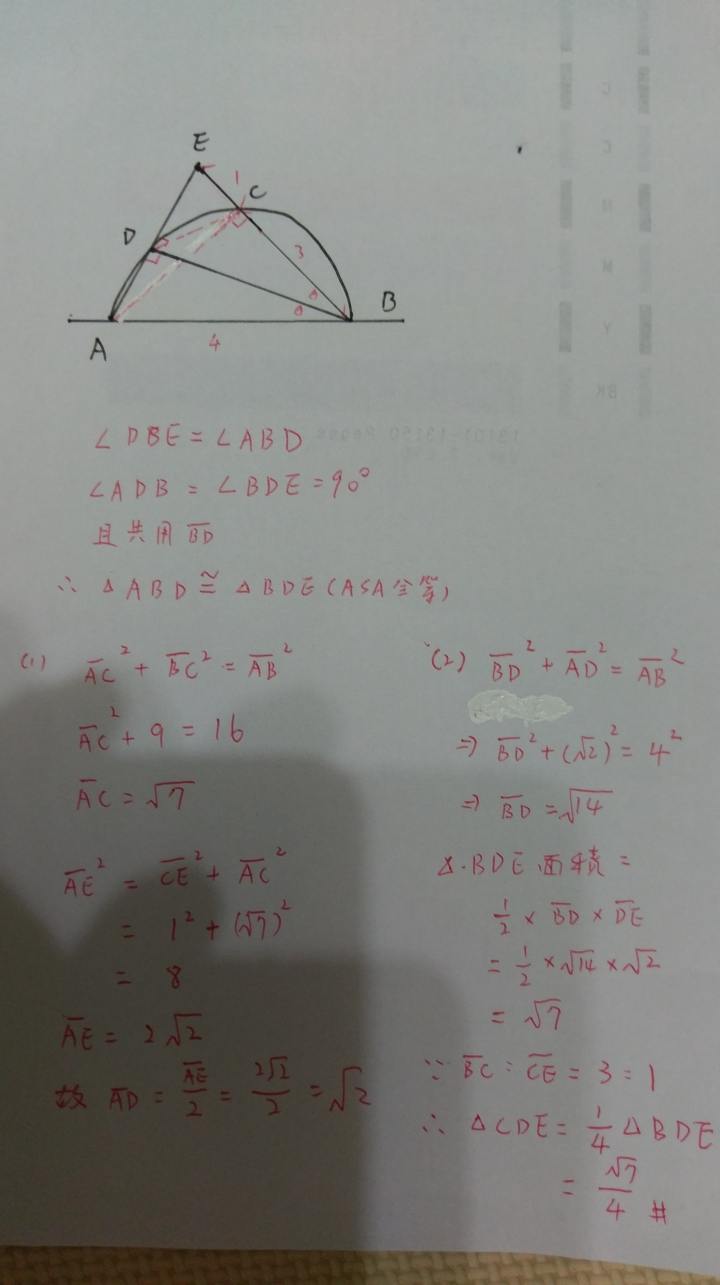 E
1
C
D
3
B
A
4
∠DBE = ∠ABD
∠ADB = ∠BDE = 90°
且共用 B̅D̅
∴ △ABD ≅ △BDE (ASA全等)
(1) A̅C̅² + B̅C̅² = A̅B̅²
A̅C̅² + 9 = 16
A̅C̅ = √7
A̅E̅² = C̅E̅² + A̅C̅²
= 1² + (√7)²
= 8
A̅E̅ = 2√2
故 A̅D̅ = A̅E̅/2 = 2√2/2 = √2
(2) B̅D̅² + A̅D̅² = A̅B̅²
⇒ B̅D̅² + (√2)² = 4²
⇒ B̅D̅ = √14
△BDE 面積 =
1/2 × B̅D̅ × D̅E̅
= 1/2 × √14 × √2
= √7
∵ B̅C̅ : C̅E̅ = 3 : 1
∴ △CDE = 1/4 △BDE
= √7/4 #